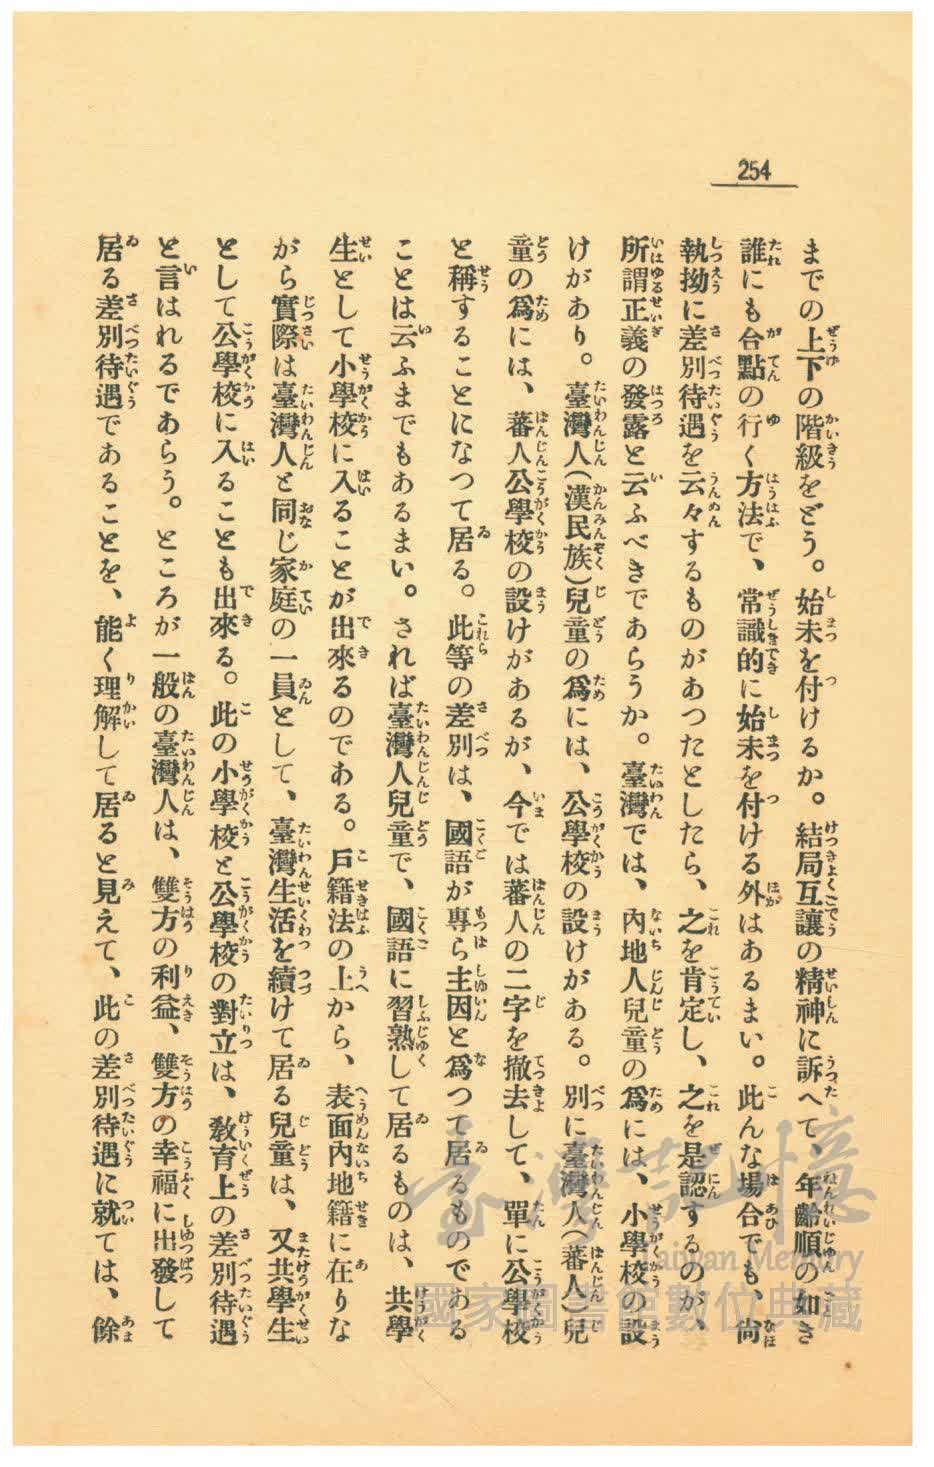 254
までの上下の階級をどう。始末を付けるか。結局互讓の精神に訴へて、年齡順の如き
誰にも合點の行く方法で、常識的に始末を付ける外はあるまい。此んな場合でも、尙
執拗に差別待遇を云々するものがあつたとしたら、之を肯定し、之を是認するのが、
所謂正義の發露と云ふべきであらうか。臺灣では、內地人兒童の爲には、小學校の設
けがあり。臺灣人(漢民族)兒童の爲には、公學校の設けがある。別に臺灣人(蕃人)兒
童の爲には、蕃人公學校の設けがあるが、今では蕃人の二字を撤去して、單に公學校
と稱することになつて居る。此等の差別は、國語が專ら主因と爲つて居るものである
ことは云ふまでもあるまい。されば臺灣人兒童で、國語に習熟して居るものは、共學
生として小學校に入ることが出來るのである。戶籍法の上から、表面內地籍に在りな
がら實際は臺灣人と同じ家庭の一員として、臺灣生活を續けて居る兒童は、又共學生
として公學校に入ることも出來る。此の小學校と公學校の對立は、敎育上の差別待遇
と言はれるであらう。ところが一般の臺灣人は、雙方の利益、雙方の幸福に出發して
居る差別待遇であることを、能く理解して居ると見えて、此の差別待遇に就ては、餘
臺灣記憶
Taiwan Memory
國家圖書館數位典藏